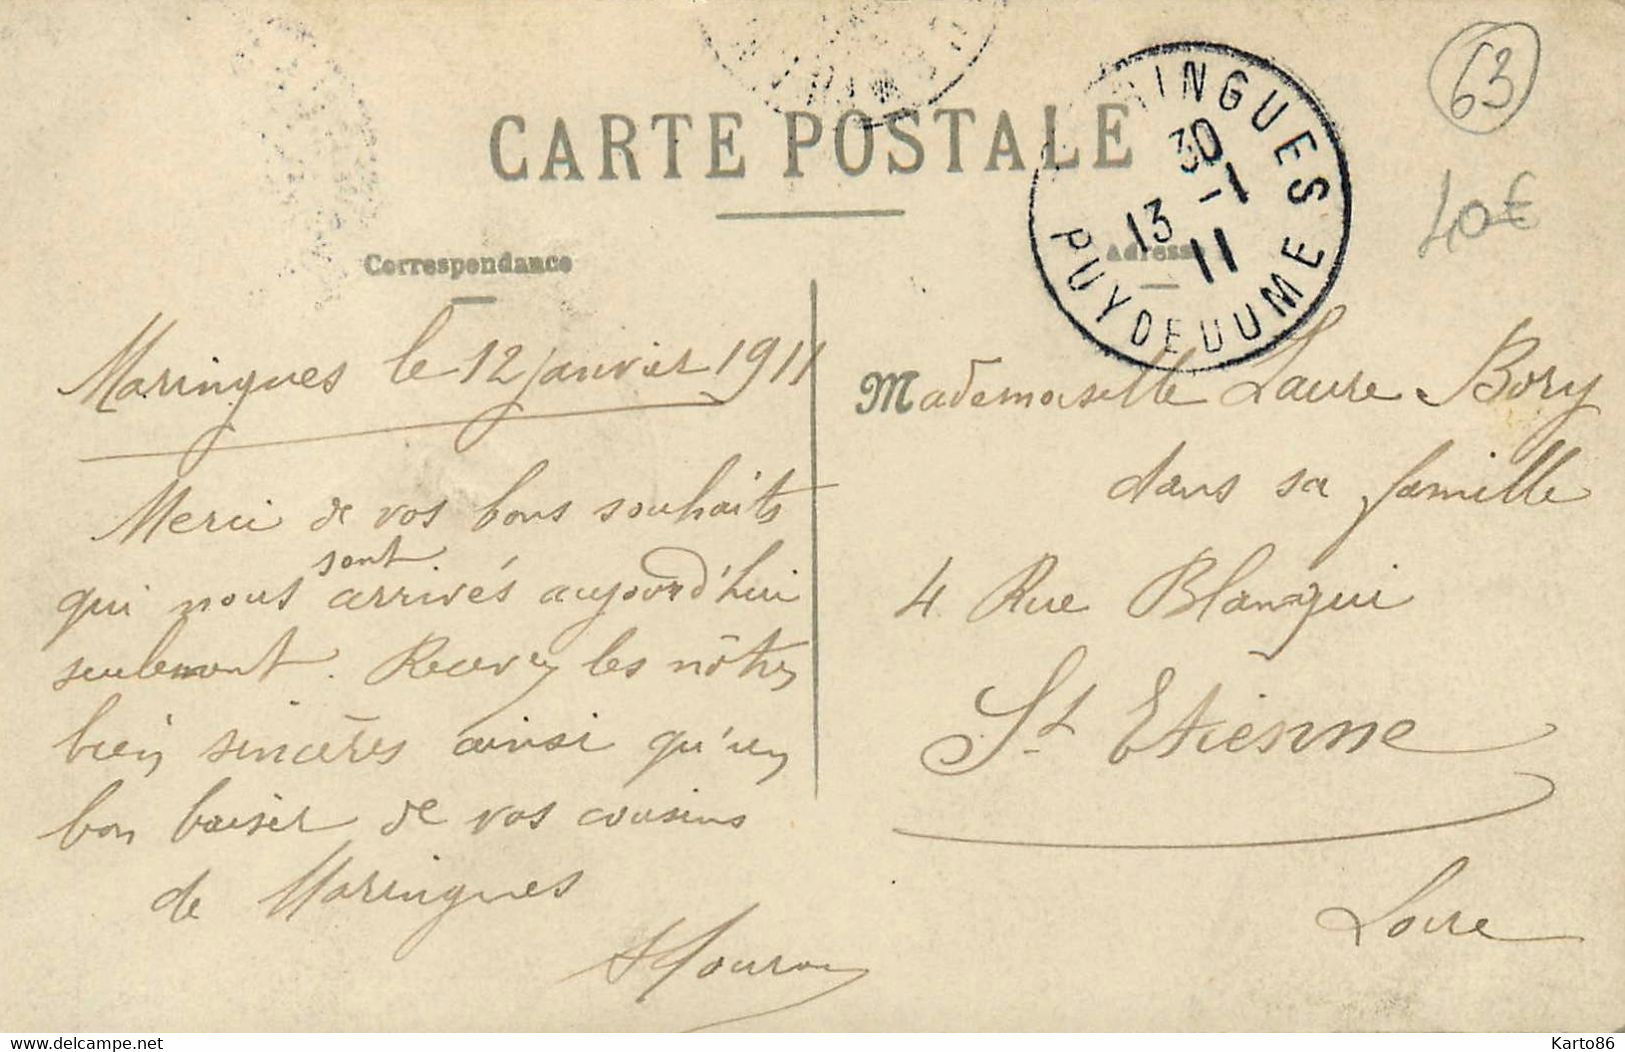 63
40€
CARTE POSTALE
INGUES
30
13 -1
11
PUY DE DOME
Correspondance
Adresse
Maringues le 12 janvier 1911
Merci de vos bons souhaits
qui nous sont arrivés aujourd'hui
seulement. Recevez les nôtres
bien sincères ainsi qu'un
bon baiser de vos cousins
de Maringues
Mademoiselle Laure Bory
dans sa famille
4 Rue Blanqui
St Etienne
Loire
delcampe.net
Karto86